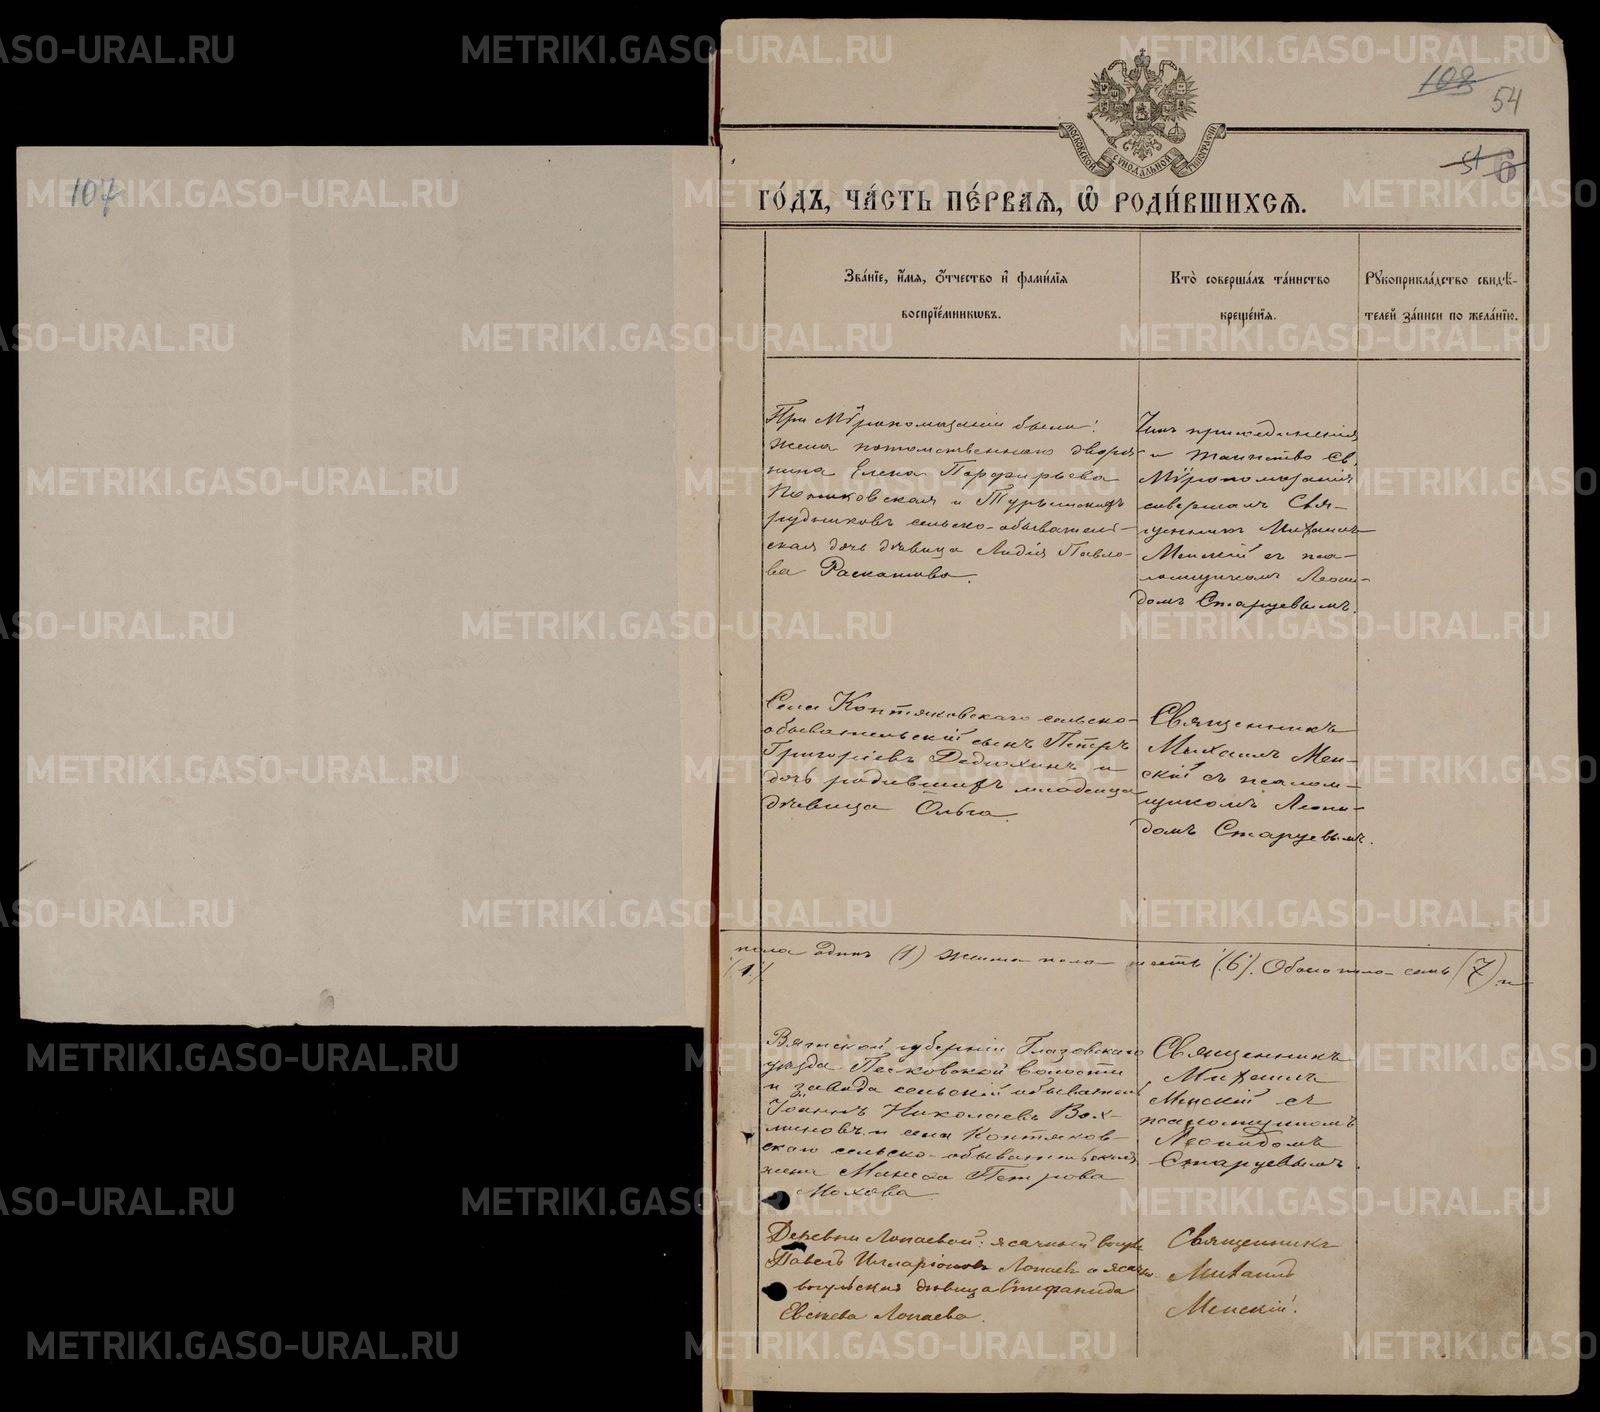 108
54
51 6
107
МОСКОВСКОЙ СѴНОДАЛЬНОЙ ТИПОГРАФІИ
ГО́ДЪ, ЧА́СТЬ ПЕ́РВАѦ, Ѡ҆ РОДИ́ВШИХСѦ.
Зва́нїе, и҆́мѧ, ѻ҆́тчество и҆ фами́лїѧ
воспрїе́мникѡвъ.
Кто̀ соверша́лъ та́инство
креще́нїѧ.
Рꙋкоприкла́дство свидѣ́-
телей за́писи по жела́нїю.
При Мѵропомазаніи были:
жена потомственнаго дворя-
нина Елена Порфирьева
и Турьинскихъ
рудниковъ сельско-обыватель-
ская дочь дѣвица Лидія Павло-
ва Раскатова.
Чинъ присоединенія
и таинство Св.
Мѵропомазанія
совершалъ Свя-
щенникъ Михаилъ
Менскій съ пса-
ломщикомъ Леони-
домъ Старцевымъ.
Села Коптяковскаго сельско-
обывательскій сынъ Петръ
Григоріевъ Дедюхинъ и
дочь родившихъ младенца
дѣвица Ольга.
Священникъ
Михаилъ Мен-
скій съ псалом-
щикомъ Леони-
домъ Старцевымъ.
пола одинъ (1) женска пола шесть (6). Обоего пола семь (7) и
(1).
Вятской губерніи Глазовскаго
уѣзда Песковской волости
и завода сельскій обыватель
Іоаннъ Николаевъ Вах-
миновъ и села Коптяков-
скаго сельско-обывательская
жена Петрова
Мохова
Священникъ
Михаилъ
Менскій съ
псаломщикомъ
Леонидомъ
Старцевымъ.
Деревни Лопаевой: ясачный вогулъ
Павелъ Илларіоновъ Лопаевъ и ясачно-
вогульская дѣвица Стефанида
Евсѣева Лопаева.
Священникъ
Михаилъ
Менскій.
METRIKI.GASO-URAL.RU